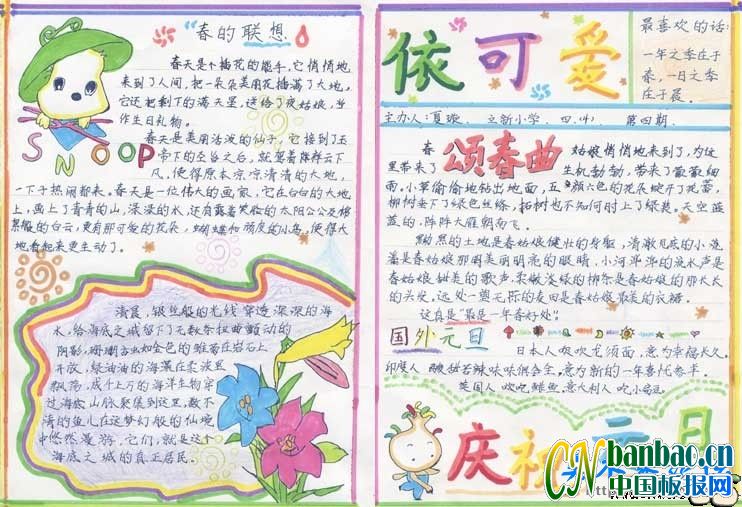 "春的联想"
春天是个插花的能手,它悄悄地
来到了人间,把一朵朵美丽花插满了大地。
它还把剩下的满天星,送给了夜姑娘,当
作生日礼物。
春天是美丽活泼的仙子,它接到玉
帝下的圣旨之后,就驾着祥云下
凡,使得原本凉凉清清的大地,
一下子热闹起来。春天是一位伟大的画家,它在白白的大地
上,画上了青青的山,深深的水,还有露着笑脸的太阳公公及
的白云,更有那可爱的花朵,蝴蝶和顽皮的小鸟,使得大
地看起来更生动了。
SNOOP
清晨,银丝般的光线穿透深深的海
水,给海底之城留下了无数条扭曲颤动的
阴影,珊瑚虫如金色的雏菊在岩石上
开放,绿油油的海藻在柔波里
飘荡,成千上万的海洋生物穿
过海底山脉聚集到这里,数不
清的鱼儿在这梦幻般的仙境
中悠然漫游,它们,就是这个
海底之城的真正居民。
依可爱
最喜欢的话:
一年之季在于
春,一日之季
在于晨。
主办人:夏璇、立新小学、四、(4) 第四期、
颂春曲
春姑娘悄悄地来到了,为这
里带来了生机勃勃,带来了微微细
雨。小草偷偷地钻出地面,五颜六色的花朵绽开了花蕾,
柳树垂下了绿色丝绦,柘树也不知何时上了绿装。天空蓝
蓝的,阵阵大雁朝南飞。
黝黑的土地是春姑娘健壮的身躯,清澈见底的小流
是春姑娘那明美丽明亮的眼睛,小河哗哗的流水声是
春姑娘甜美的歌声,柔嫩浅绿的柳条是春姑娘的那长长
的头发,远处一望无际的麦田是春姑娘最美的衣裙。
这真是"最是一年春好处"。
国外元旦
日本人吸吹龙须面,意为幸福长久。
印度人 酸甜苦辣味味俱会全,意为新的一年喜忧参半。
英国人 吹吃鲱鱼,意大利人吃小扁豆。
庆祝元旦
CN
banbao.cn
中国板报网